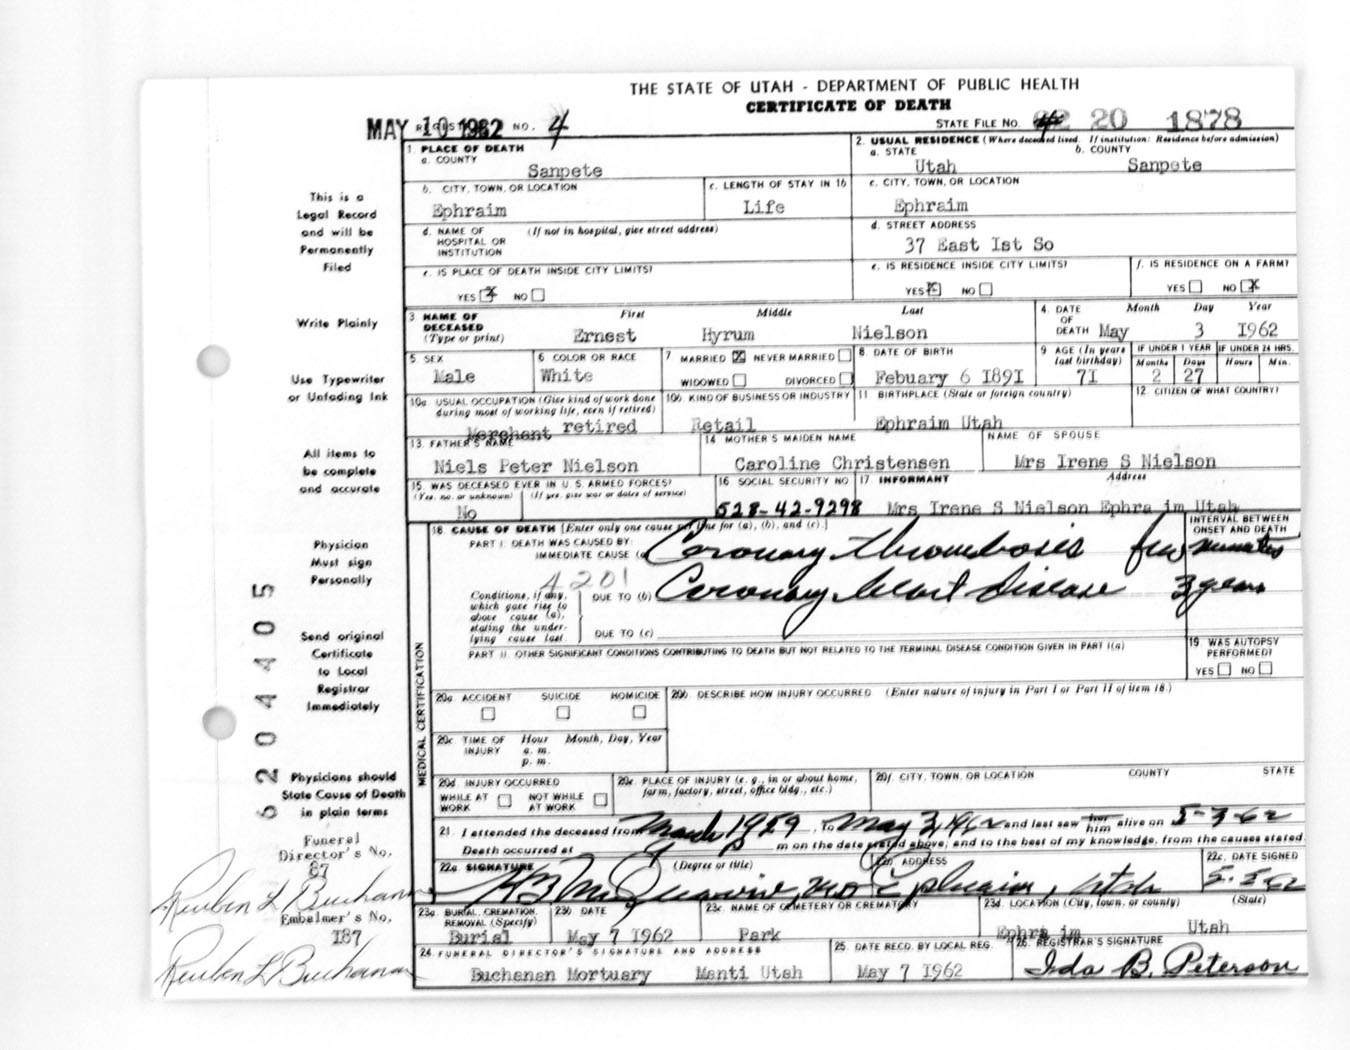 THE STATE OF UTAH - DEPARTMENT OF PUBLIC HEALTH
CERTIFICATE OF DEATH
MAY 10 1962 NO. 4
STATE FILE NO. 20 1878
1. PLACE OF DEATH
a. COUNTY
Sanpete
2. USUAL RESIDENCE (Where deceased lived. If institution: Residence before admission)
a. STATE b. COUNTY
Utah Sanpete
b. CITY, TOWN, OR LOCATION
Ephraim
c. LENGTH OF STAY IN 1b
Life
c. CITY, TOWN, OR LOCATION
Ephraim
d. NAME OF HOSPITAL OR INSTITUTION (If not in hospital, give street address)
d. STREET ADDRESS
37 East Ist So
e. IS PLACE OF DEATH INSIDE CITY LIMITS?
YES X NO
e. IS RESIDENCE INSIDE CITY LIMITS?
YES X NO
f. IS RESIDENCE ON A FARM?
YES NO X
3. NAME OF DECEASED (Type or print)
First Middle Last
Ernest Hyrum Nielson
4. DATE OF DEATH
Month Day Year
May 3 I962
5 SEX
Male
6 COLOR OR RACE
White
7 MARRIED X NEVER MARRIED
WIDOWED DIVORCED
8 DATE OF BIRTH
Febuary 6 I89I
9 AGE (In years last birthday)
7I
IF UNDER 1 YEAR
Months Days
2 27
IF UNDER 24 HRS.
Hours Min.
10a. USUAL OCCUPATION (Give kind of work done during most of working life, even if retired)
Merchant retired
10b. KIND OF BUSINESS OR INDUSTRY
Retail
11 BIRTHPLACE (State or foreign country)
Ephraim Utah
12 CITIZEN OF WHAT COUNTRY?
13. FATHER'S NAME
Niels Peter Nielson
14 MOTHER'S MAIDEN NAME
Caroline Christensen
NAME OF SPOUSE
Mrs Irene S Nielson
15. WAS DECEASED EVER IN U. S. ARMED FORCES?
(Yes, no, or unknown) (If yes, give war or dates of service)
No
16 SOCIAL SECURITY NO
528-42-9298
17 INFORMANT Address
Mrs Irene S Nielson Ephra im Utah
18. CAUSE OF DEATH [Enter only one cause per line for (a), (b), and (c).]
PART I. DEATH WAS CAUSED BY:
IMMEDIATE CAUSE (a) Coronary thrombosis
INTERVAL BETWEEN ONSET AND DEATH
few minutes
4201
Conditions, if any, which gave rise to above cause (a), stating the underlying cause last.
DUE TO (b) Coronary Heart Disease 3 years
DUE TO (c)
PART II. OTHER SIGNIFICANT CONDITIONS CONTRIBUTING TO DEATH BUT NOT RELATED TO THE TERMINAL DISEASE CONDITION GIVEN IN PART I(a)
19 WAS AUTOPSY PERFORMED?
YES NO
MEDICAL CERTIFICATION
20a. ACCIDENT SUICIDE HOMICIDE
20b. DESCRIBE HOW INJURY OCCURRED (Enter nature of injury in Part I or Part II of item 18.)
20c TIME OF INJURY Hour Month, Day, Year
a. m.
p. m.
20d INJURY OCCURRED
WHILE AT WORK NOT WHILE AT WORK
20e. PLACE OF INJURY (e. g., in or about home, farm, factory, street, office bldg., etc.)
20f. CITY, TOWN, OR LOCATION COUNTY STATE
21. I attended the deceased from March 1959, to May 3, 1962 and last saw her him alive on 5-3-62
Death occurred at P m on the date stated above; and to the best of my knowledge, from the causes stated.
22a. SIGNATURE (Degree or title)
22b ADDRESS
Ephraim, Utah
22c. DATE SIGNED
5-5-62
23a. BURIAL, CREMATION, REMOVAL (Specify)
Burial
23b DATE
May 7 I962
23c. NAME OF CEMETERY OR CREMATORY
Park
23d. LOCATION (City, town, or county) (State)
Ephra im Utah
24. FUNERAL DIRECTOR'S SIGNATURE AND ADDRESS
Buchanan Mortuary Manti Utah
25. DATE RECD. BY LOCAL REG.
May 7 I962
26. REGISTRAR'S SIGNATURE
Ida B. Peterson
This is a
Legal Record
and will be
Permanently
Filed
Write Plainly
Use Typewriter
or Unfading Ink
All items to
be complete
and accurate
Physician
Must sign
Personally
Send original
Certificate
to Local
Registrar
Immediately
Physicians should
State Cause of Death
in plain terms
62 04405
Funeral
Director's No.
87
Reuben L Buchanan
Embalmer's No.
I87
Reuben L Buchanan